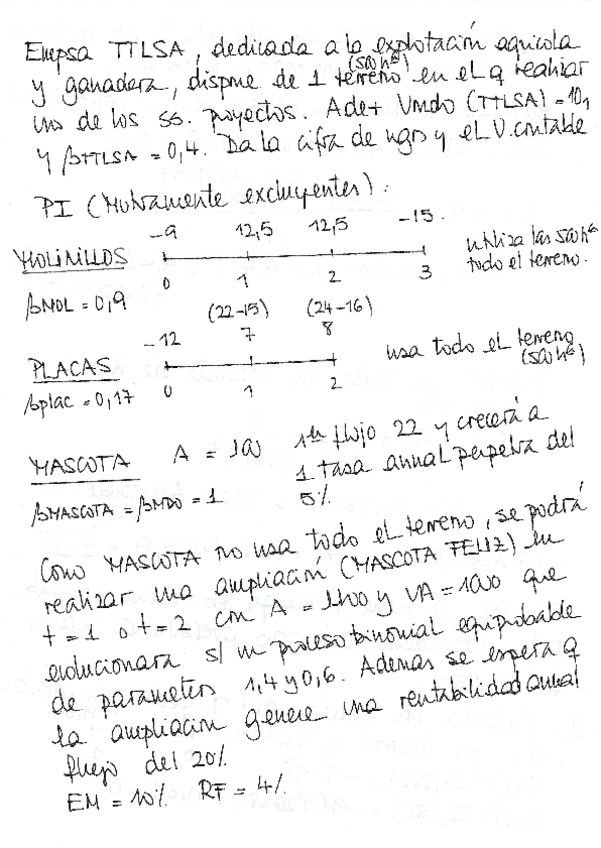 Empsa TTLSA, dedicada a la explotación agrícola
(500 hª)
y ganadera, dispne de 1 terreno en el q realizar
uno de los ss. proyectos. Ade+ Vmdo (TTLSA) = 10,
y βTTLSA = 0,4. Da la cifra de ngrs y el V. contable
PI (Mutuamente excluyentes):
-9 12,5 12,5 -15.
MOLINILLOS
0 1 2 3
utiliza las 500 hª
todo el terreno.
βMOL = 0,9
(22-15) (24-16)
-12 7 8
PLACAS
0 1 2
usa todo el terreno
(500 hª)
βplac = 0,17
MASCOTA A = 100 1er flujo 22 y crecerá a
1 tasa annal perpetua del
5%.
βMASCOTA = βMDO = 1
Como MASCOTA no usa todo el terreno, se podrá
realizar una ampliación (MASCOTA FELIZ) en
t = 1 o t = 2 con A = 1100 y VA = 1000 que
evolucionara s/ un proceso binomial equiprobable
de parametros 1,4 y 0,6. Ademas se espera q
la ampliación genere una rentabilidad annal
flujo del 20%.
EM = 10% RF = 4%.